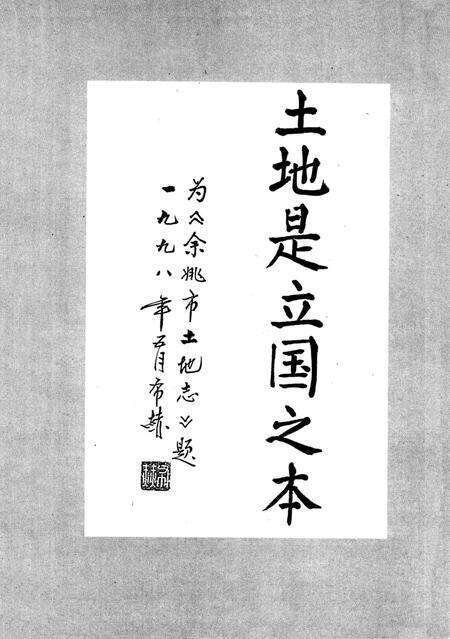 土地是立国之本
为《余姚市土地志》题
一九九八年五月布赫